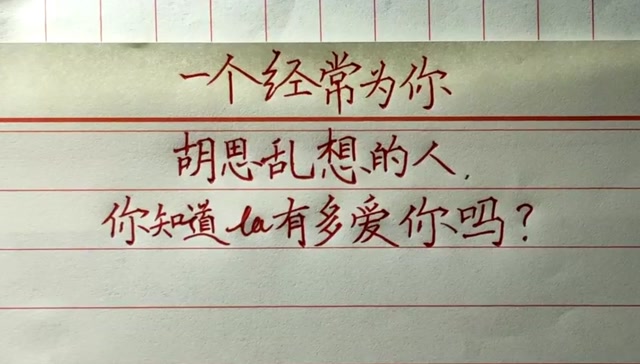 一个经常为你
胡思乱想的人,
你知道ta有多爱你吗?